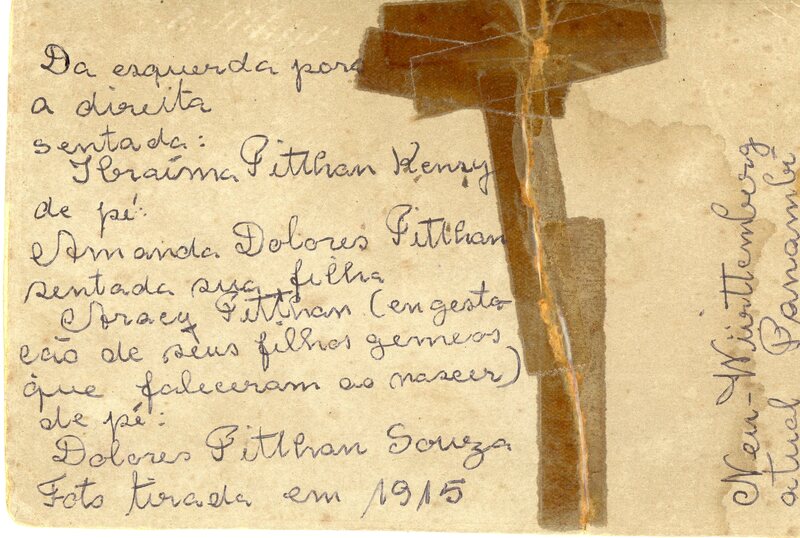 Da esquerda para
a direita
sentada:
Ibraíma Pitthan Kenzy
de pé:
Amanda Dolores Pitthan
sentada sua filha
Aracy Pitthan (en gesta-
ção de seus filhos gemeos
que faleceram ao nascer)
de pé:
Dolores Pitthan Souza
Foto tirada em 1915
Neu-Württemberg
atual Panambi